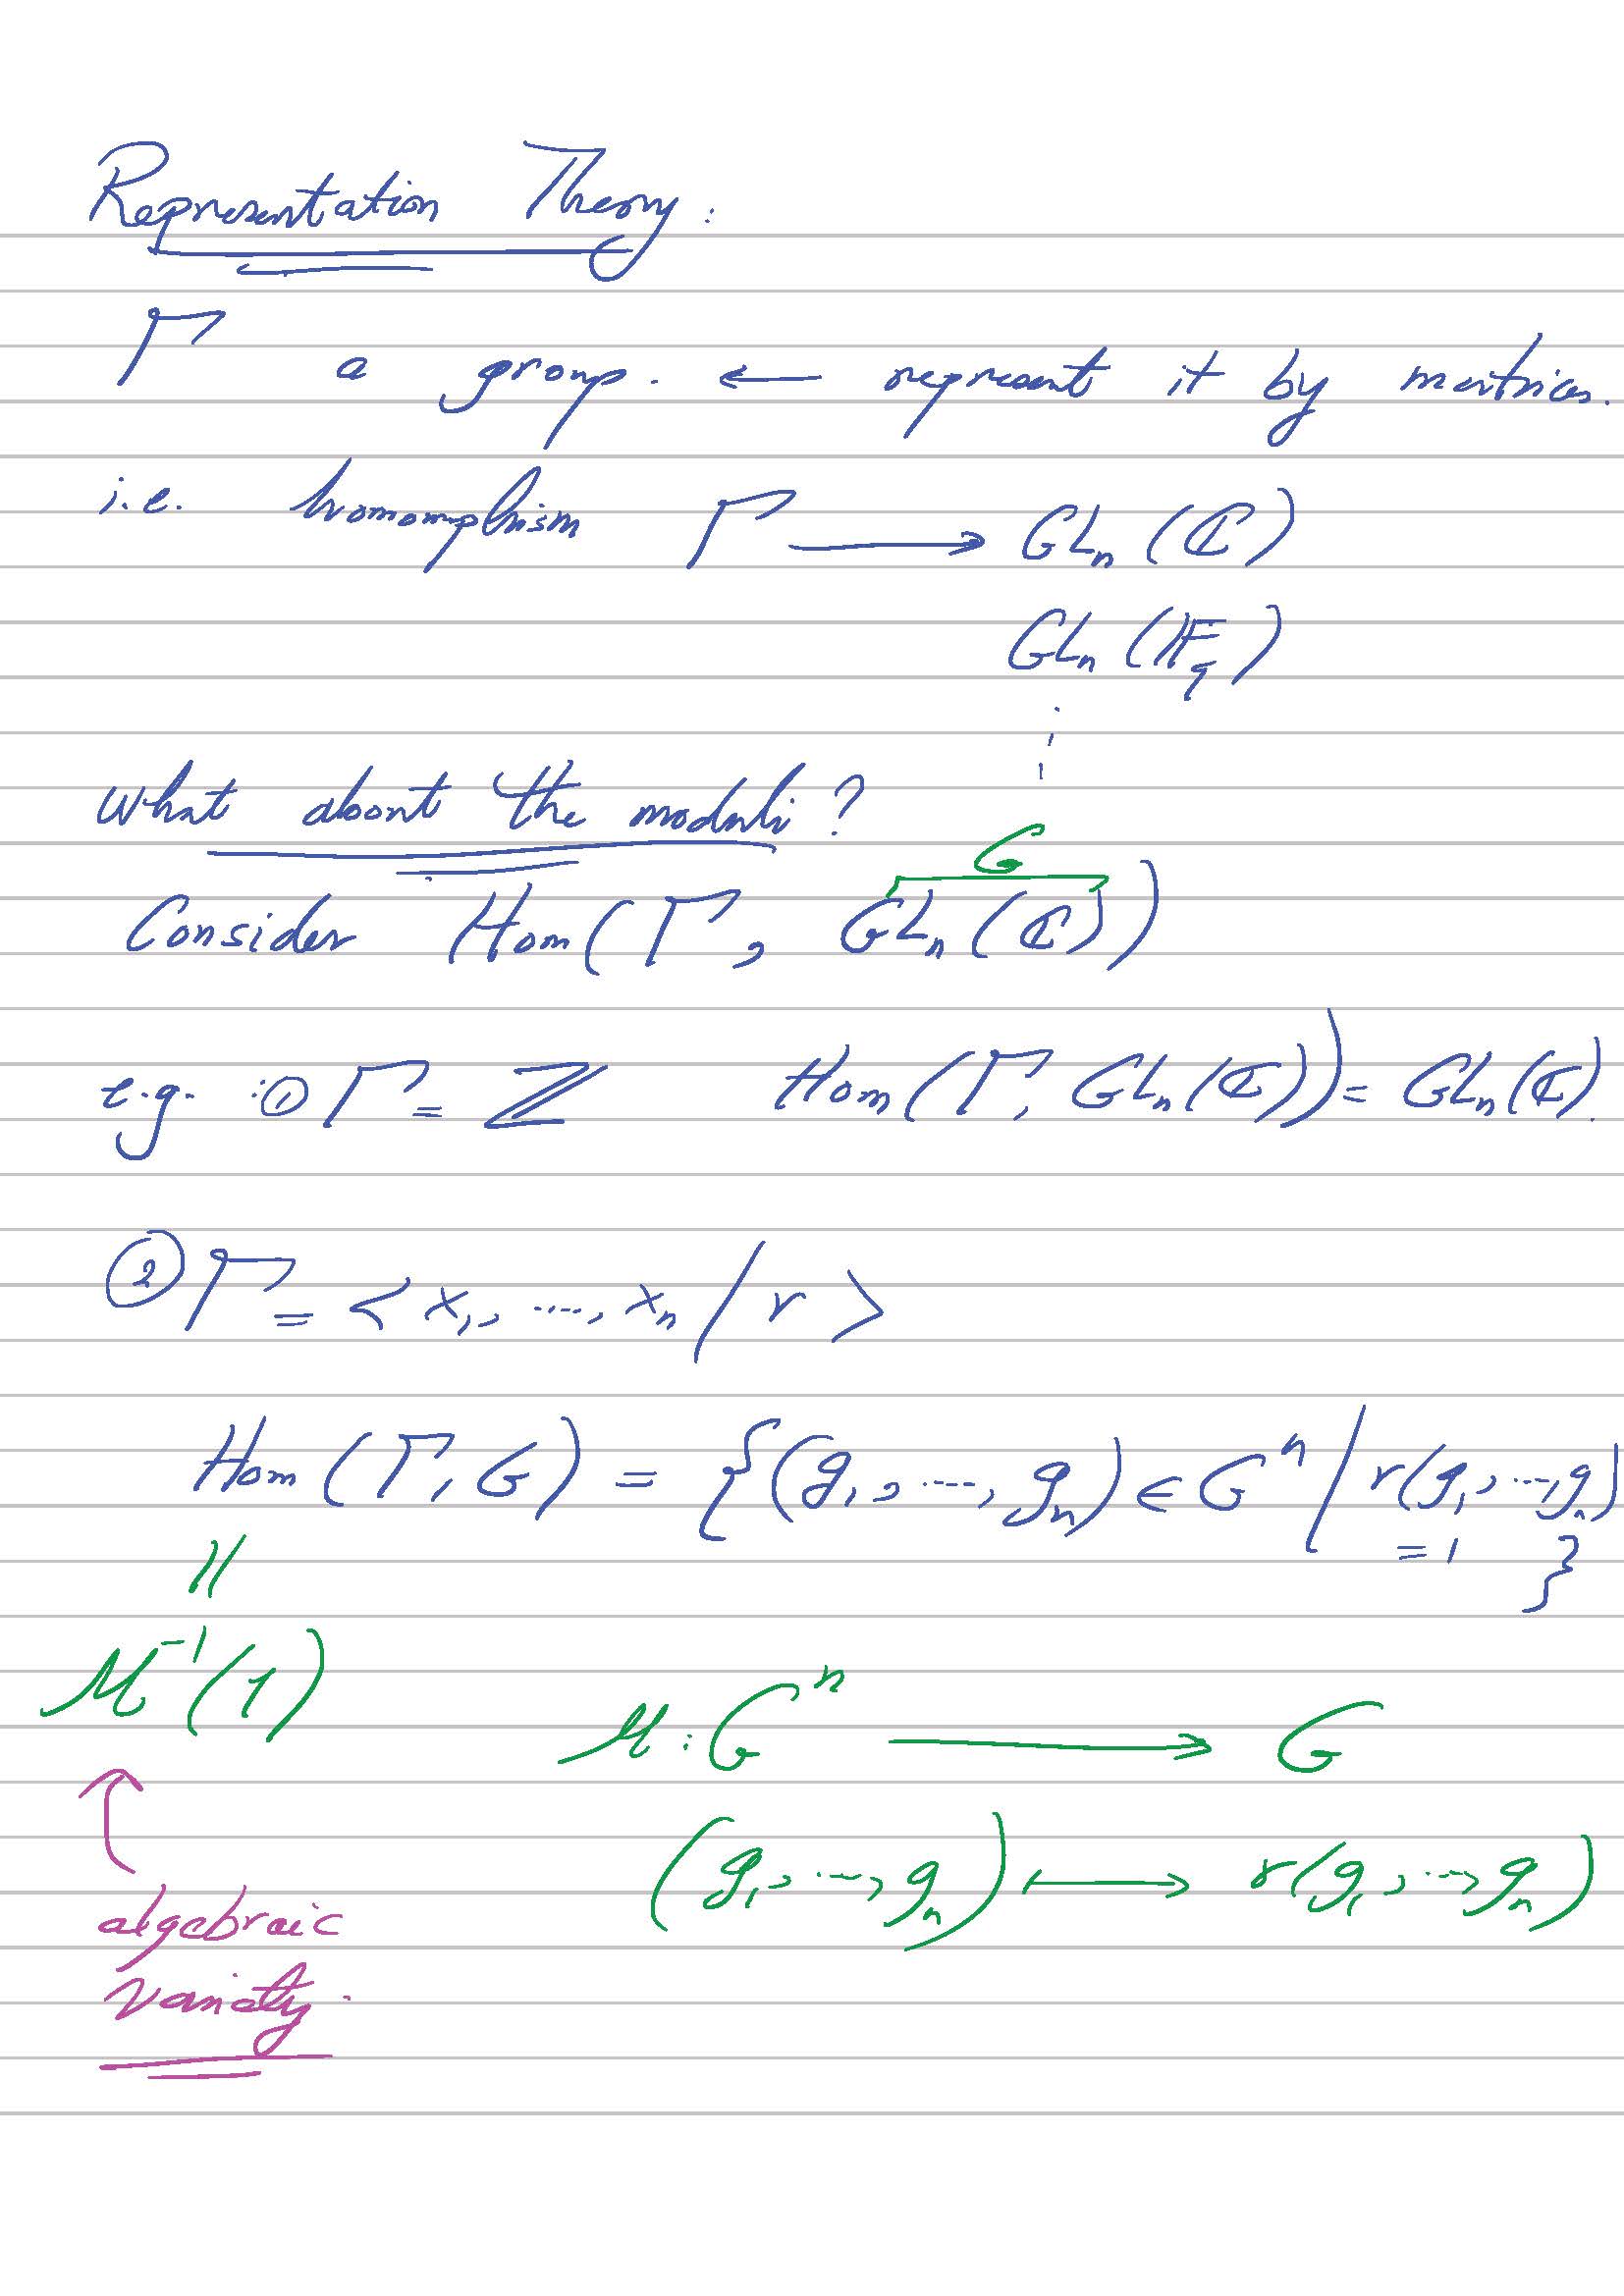 Representation Theory:
Γ a group. ← represent it by matrices.
i.e. homomorphism Γ → GLₙ(ℂ)
GLₙ(𝔽_q)
⋮
What about the moduli?
G
Consider Hom(Γ, GLₙ(ℂ))
e.g. : ① Γ = ℤ Hom(Γ, GLₙ(ℂ)) = GLₙ(ℂ).
② Γ = < x₁, ..., xₙ / r >
Hom(Γ, G) = {(g₁, ..., gₙ) ∈ Gⁿ / r(g₁, ..., gₙ)
= 1 }
||
μ⁻¹(1) μ: Gⁿ → G
(g₁, ..., gₙ) ↦ r(g₁, ..., gₙ)
↑
algebraic
variety.